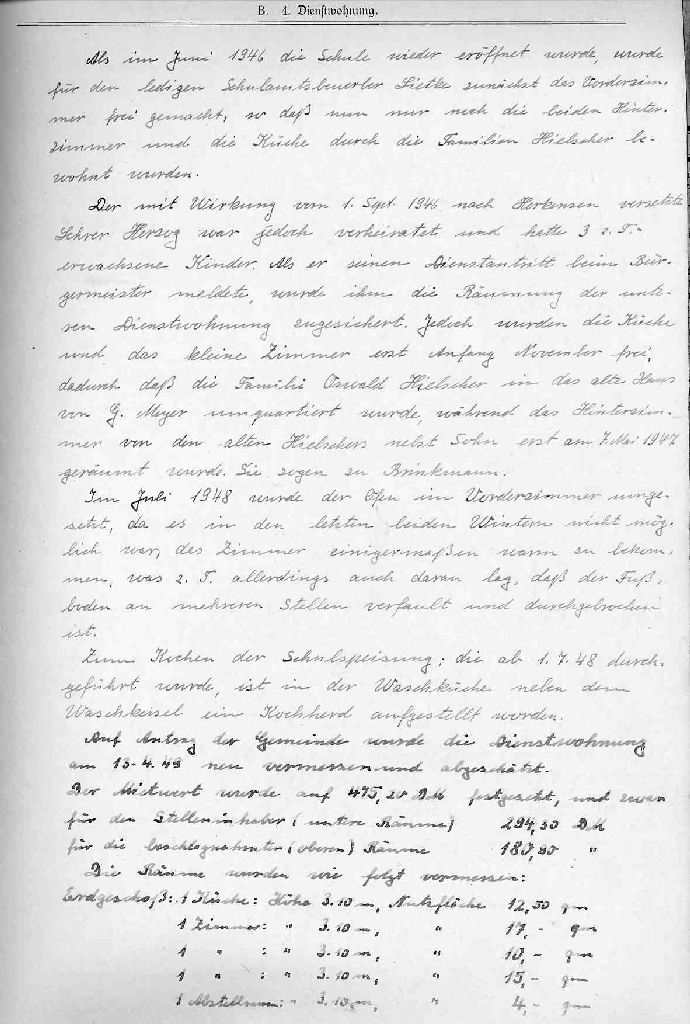 B. 4. Dienstwohnung.
Als im Juni 1946 die Schule wieder eröffnet wurde, wurde
für den ledigen Schulamtsbewerber Lietke zunächst das Vorderzim-
mer frei gemacht, so daß nun nur noch die beiden Hinter-
zimmer und die Küche durch die Familien Hielscher be-
wohnt wurden.
Der mit Wirkung vom 1. Sept. 1946 nach Herkensen versetzte
Lehrer Herzog war jedoch verheiratet und hatte 3 z. T.
erwachsene Kinder. Als er seinen Dienstantritt beim Bür-
germeister meldete, wurde ihm die Räumung der unte-
ren Dienstwohnung zugesichert. Jedoch wurden die Küche
und das kleine Zimmer erst Anfang November frei,
dadurch daß die Familie Oswald Hielscher in das alte Haus
von G. Meyer umquartiert wurde, während das Hinterzim-
mer von den alten Hielschers nebst Sohn erst am 7. Mai 1947
geräumt wurde. Sie zogen zu Brinkmann.
Im Juli 1948 wurde der Ofen im Vorderzimmer umge-
setzt, da es in den letzten beiden Wintern nicht mög-
lich war, das Zimmer einigermaßen warm zu bekom-
men, was z. T. allerdings auch daran lag, daß der Fuß-
boden an mehreren Stellen verfault und durchgebrochen
ist.
Zum Kochen der Schulspeisung, die ab 1. 7. 48 durch-
geführt wurde, ist in der Waschküche neben dem
Waschkessel ein Kochherd aufgestellt worden.
Auf Antrag der Gemeinde wurde die Dienstwohnung
am 13. 4. 49 neu vermessen und abgeschätzt.
Der Mietwert wurde auf 475,20 DM festgesetzt, und zwar
für den Stelleninhaber (untere Räume) 294,30 DM
für die beschlagnahmten (oberen) Räume 180,90 "
Die Räume wurden wie folgt vermessen:
Erdgeschoß: 1 Küche: Höhe 3.10 m, Nutzfläche 12,50 qm
1 Zimmer: " 3.10 m, " 17,- qm
1 " : " 3.10 m, " 10,- qm
1 " : " 3.10 m, " 15,- qm
1 Abstellraum: " 3.10 m, " 4,- qm